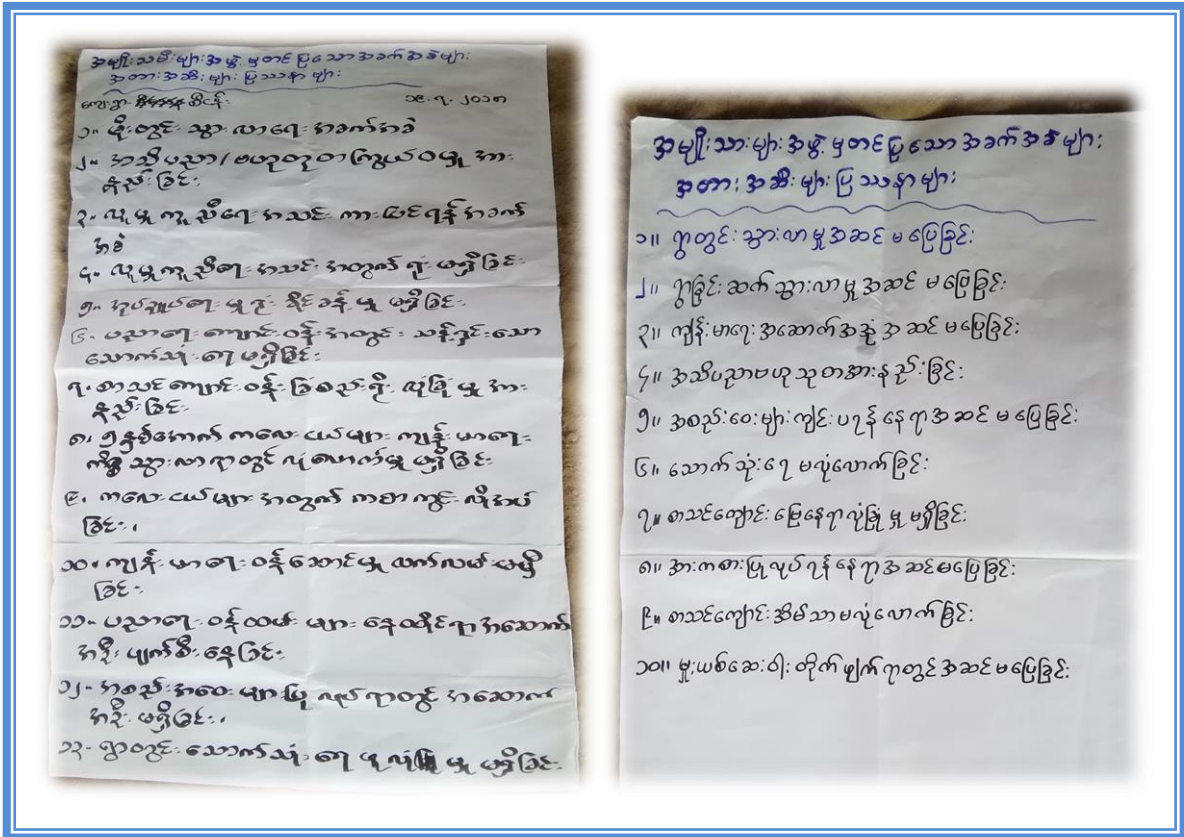 အမျိုးသမီးများအဖွဲ့မှတင်ပြသောအခက်အခဲများ
အတားအဆီးများပြဿနာများ
ကျေးရွာ
၁၉.၇.၂၀၁၈
၁။ မိုးတွင်းသွားလာရေးအခက်အခဲ
၂။ အသိပညာ/ဗဟုသုတကြွယ်ဝမှုအား
နည်းခြင်း
၃။ လူမှုကူညီရေးအသင်းကားဝင်ရန်အခက်
အခဲ
၄။ လူမှုကူညီရေးအသင်းအတွက်ရုံးမရှိခြင်း
၅။ အုပ်ချုပ်ရေးမှုရုံးခိုင်ခန့်မှုမရှိခြင်း
၆။ ပညာရေးကျောင်းဝန်းအတွင်းသန့်ရှင်းသော
သောက်သုံးရေမရှိခြင်း
၇။ စာသင်ကျောင်းဝန်းခြံစည်းရိုးလုံခြုံမှုအား
နည်းခြင်း
၈။ ၅နှစ်အောက်ကလေးငယ်များကျန်းမာရေး
ကိစ္စသွားလာရာတွင်လုံလောက်မှုမရှိခြင်း
၉။ ကလေးငယ်များအတွက်ကစားကွင်းလိုအပ်
ခြင်း။
၁၀။ ကျန်းမာရေးဝန်ဆောင်မှုလက်လမ်းမမှီ
ခြင်း
၁၁။ ပညာရေးဝန်ထမ်းများနေထိုင်ရာအဆောက်
အဦးပျက်စီးနေခြင်း
၁၂။ အစည်းအဝေးများပြုလုပ်ရာတွင်အဆောက်
အဦးမရှိခြင်း။
၁၃။ ရွာတွင်းသောက်သုံးရေဖူလုံမှုမရှိခြင်း
အမျိုးသားများအဖွဲ့မှတင်ပြသောအခက်အခဲများ
အတားအဆီးများပြဿနာများ
၁။ ရွာတွင်းသွားလာမှုအဆင်မပြေခြင်း
၂။ ရွာခြင်းဆက်သွားလာမှုအဆင်မပြေခြင်း
၃။ ကျန်းမာရေးအဆောက်အအုံအဆင်မပြေခြင်း
၄။ အသိပညာဗဟုသုတအားနည်းခြင်း
၅။ အစည်းဝေးများကျင်းပရန်နေရာအဆင်မပြေခြင်း
၆။ သောက်သုံးရေမလုံလောက်ခြင်း
၇။ စာသင်ကျောင်းမြေနေရာလုံခြုံမှုမရှိခြင်း
၈။ အားကစားပြုလုပ်ရန်နေရာအဆင်မပြေခြင်း
၉။ စာသင်ကျောင်းအိမ်သာမလုံလောက်ခြင်း
၁၀။ မူးယစ်ဆေးဝါးတိုက်ဖျက်ရာတွင်အဆင်မပြေခြင်း